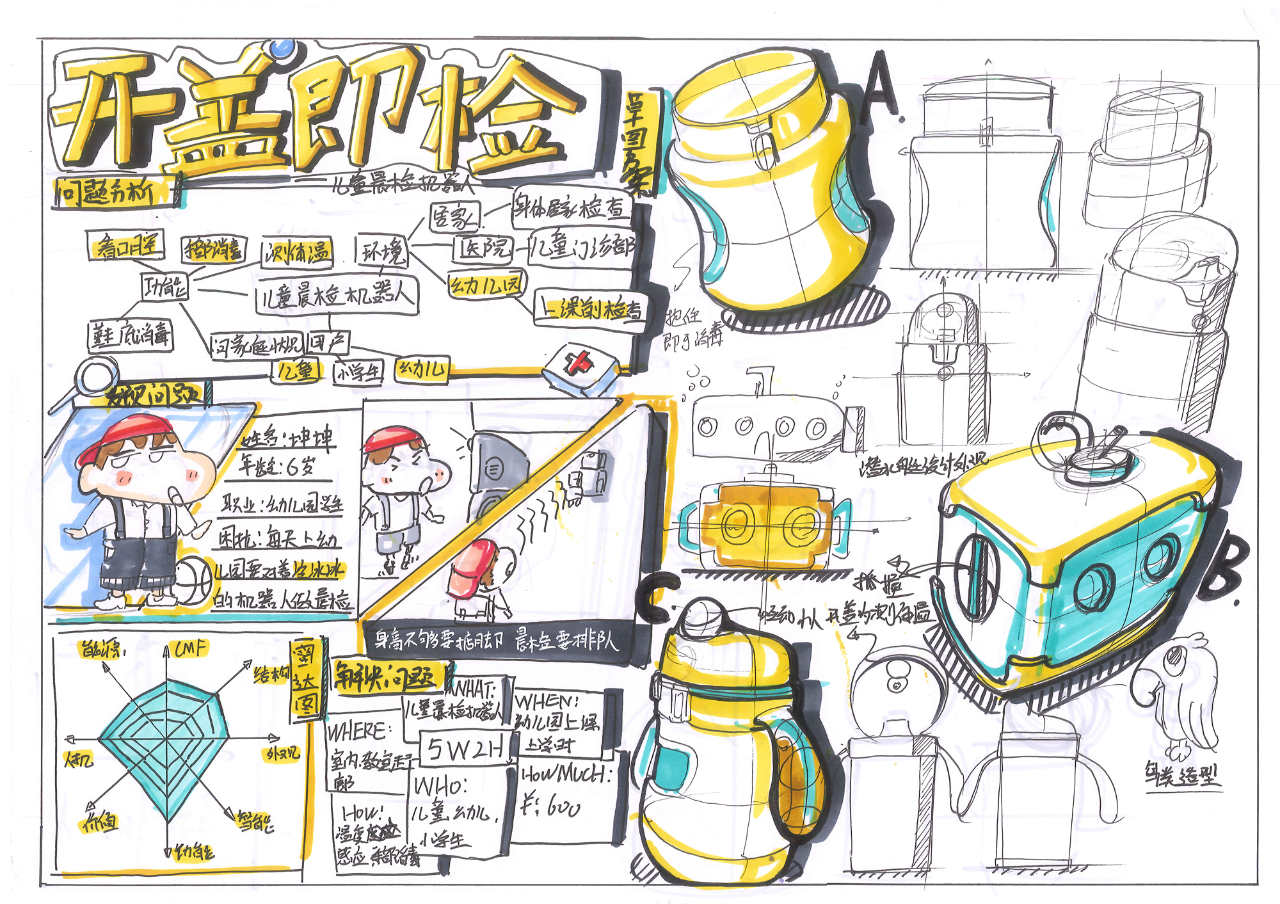 开盖即检
问题分析
儿童晨检机器人
居家
身体居家检查
看口腔
手部消毒
测体温
环境
医院
儿童门诊部
功能
儿童晨检机器人
幼儿园
上课前检查
鞋底消毒
问家庭状况
用户
儿童
小学生
幼儿
发现问题
姓名:坤坤
年龄:6岁
职业:幼儿园学生
困扰:每天上幼
儿园要对着空冰冰
的机器人做晨检
身高不够要掂脚 晨检要排队
雷达图
能源
CMF
结构
外观
智能
功能
价值
人机
解决问题
5W2H
WHAT:
儿童晨检机器人
WHEN:
幼儿园上课
上学时
WHERE:
室内,教室走
廊
WHO:
儿童,幼儿,
小学生
HOW MUCH:
¥:600
HOW:
温度
感应 手部消毒
草图方案
A.
抱住
即手消毒
潜水艇设计外观
B.
抓握
C.
开盖为测体温
鸟类造型